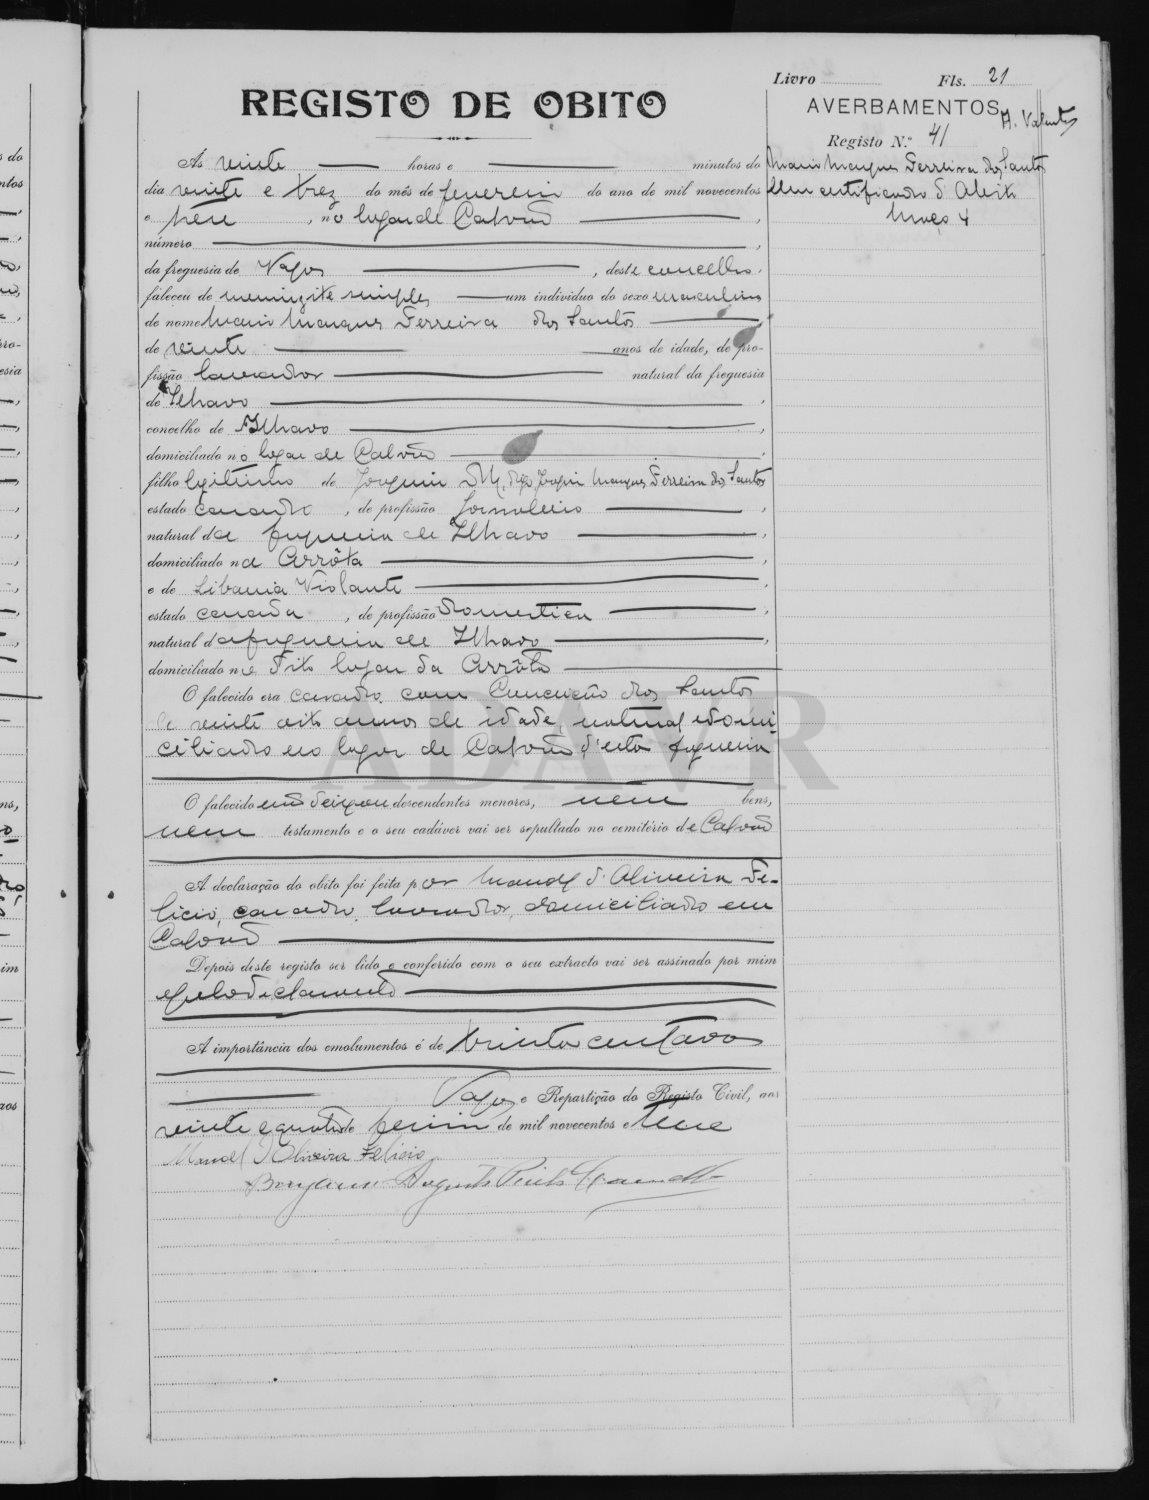 Livro Fls. 21
REGISTO DE OBITO
AVERBAMENTOS
Registo N.º 41
Às vinte horas e minutos do
dia vinte e trez do mês de fevereiro do ano de mil novecentos
e treze, no logar de Calvão,
número
da freguesia de Vagos, deste concelho,
faleceu de meningite simples um individuo do sexo masculino
de nome Mario Marques Ferreira dos Santos
de vinte anos de idade, de pro-
fissão lavrador natural da freguesia
de Ilhavo,
concelho de Ilhavo,
domiciliado no logar de Calvão,
filho legitimo de Joaquim M, digo, Joaquim Marques Ferreira dos Santos
estado casado, de profissão Jornaleiro,
natural da freguesia de Ilhavo,
domiciliado na Arrôta,
e de Libania Violante,
estado casada, de profissão domestica,
natural da freguesia de Ilhavo,
domiciliado no dito logar da Arrôta
O falecido era casado com Conceição dos Santos
de vinte oito annos de idade, natural e domi-
ciliada no logar de Calvão d'esta freguesia
O falecido não deixou descendentes menores, nem bens,
nem testamento e o seu cadáver vai ser sepultado no cemitério de Calvão
A declaração do obito foi feita por Manoel d'Oliveira Fe-
licio, casado, lavrador, domiciliado em
Calvão
Depois deste registo ser lido e conferido com o seu extracto vai ser assinado por mim
e pelo declarante
A importância dos emolumentos é de trinta centavos
Vagos e Repartição do Registo Civil, aos
vinte e quatro de fevereiro de mil novecentos e treze
Manoel d'Oliveira Felicio
Mario Marques Ferreira dos Santos
Um certificado d'Obito
Maço 4
ADAVR